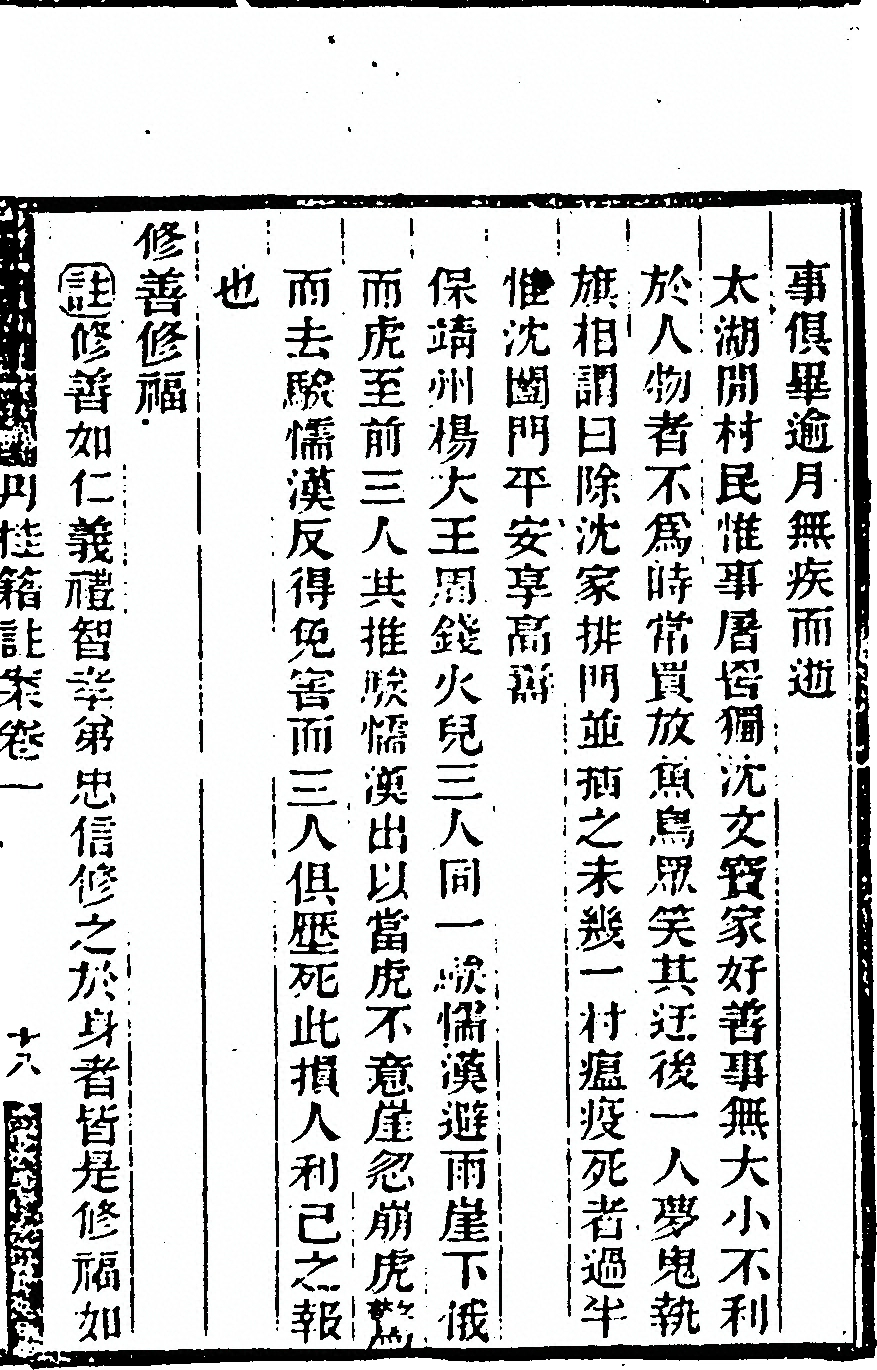 事俱畢逾月無疾而逝
太湖間村民惟事屠罟獨沈文寶家好善事無大小不利
於人物者不爲時常買放魚鳥眾笑其迂後一人夢鬼執
旗相謂曰除沈家排門並揷之未幾一村瘟疫死者過半
惟沈闔門平安享高壽
保靖州楊大王周錢火兒三人同一騃懦漢避雨崖下俄
而虎至前三人共推騃懦漢出以當虎不意崖忽崩虎驚
而去騃懦漢反得免害而三人俱壓死此損人利己之報
也
修善修福
註修善如仁義禮智孝弟忠信修之於身者皆是修福如
丹桂籍註案卷一
十八